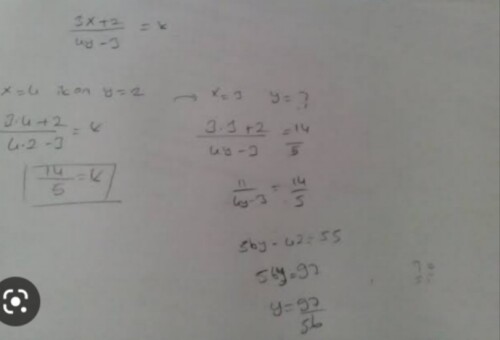 3x+2 / 4y-3 = k
x=4 iken y=2 → x=3 y=?
3.4+2 / 4.2-3 = k
14/5 = k
3.3+2 / 4y-3 = 14/5
11 / 4y-3 = 14/5
56y-42=55
56y=97
y=97/56